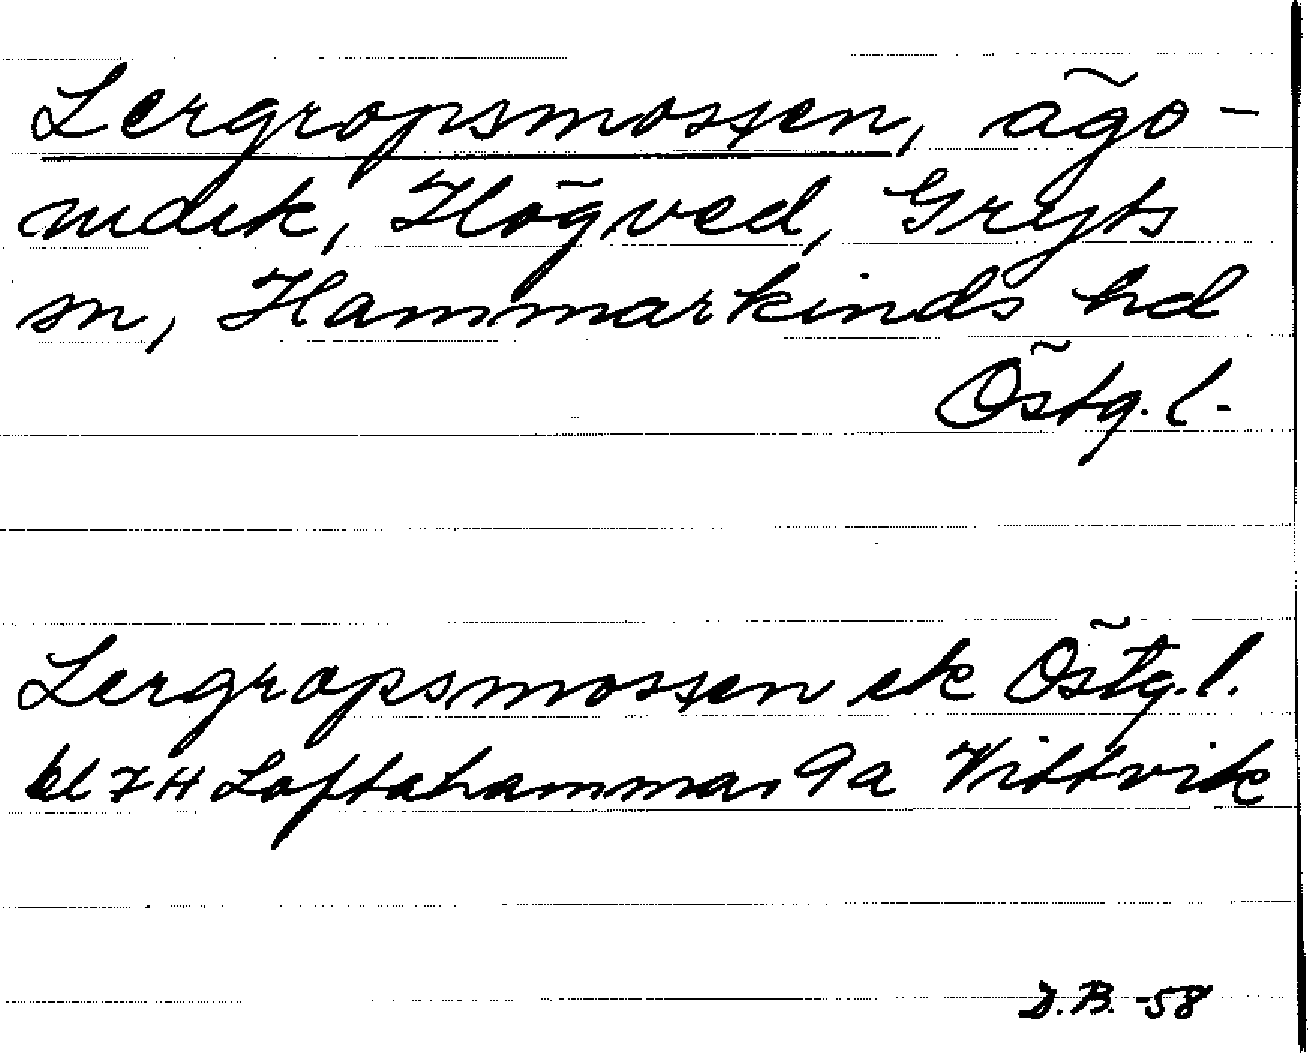 Lergropsmossen, ägo-
mark, Högved, Gryts
sn, Hammarkinds hd
Östg. l.
Lergropsmossen ek Östg. l.
bl 7 H Loftahammar 9a Vittvik
D.B. -58